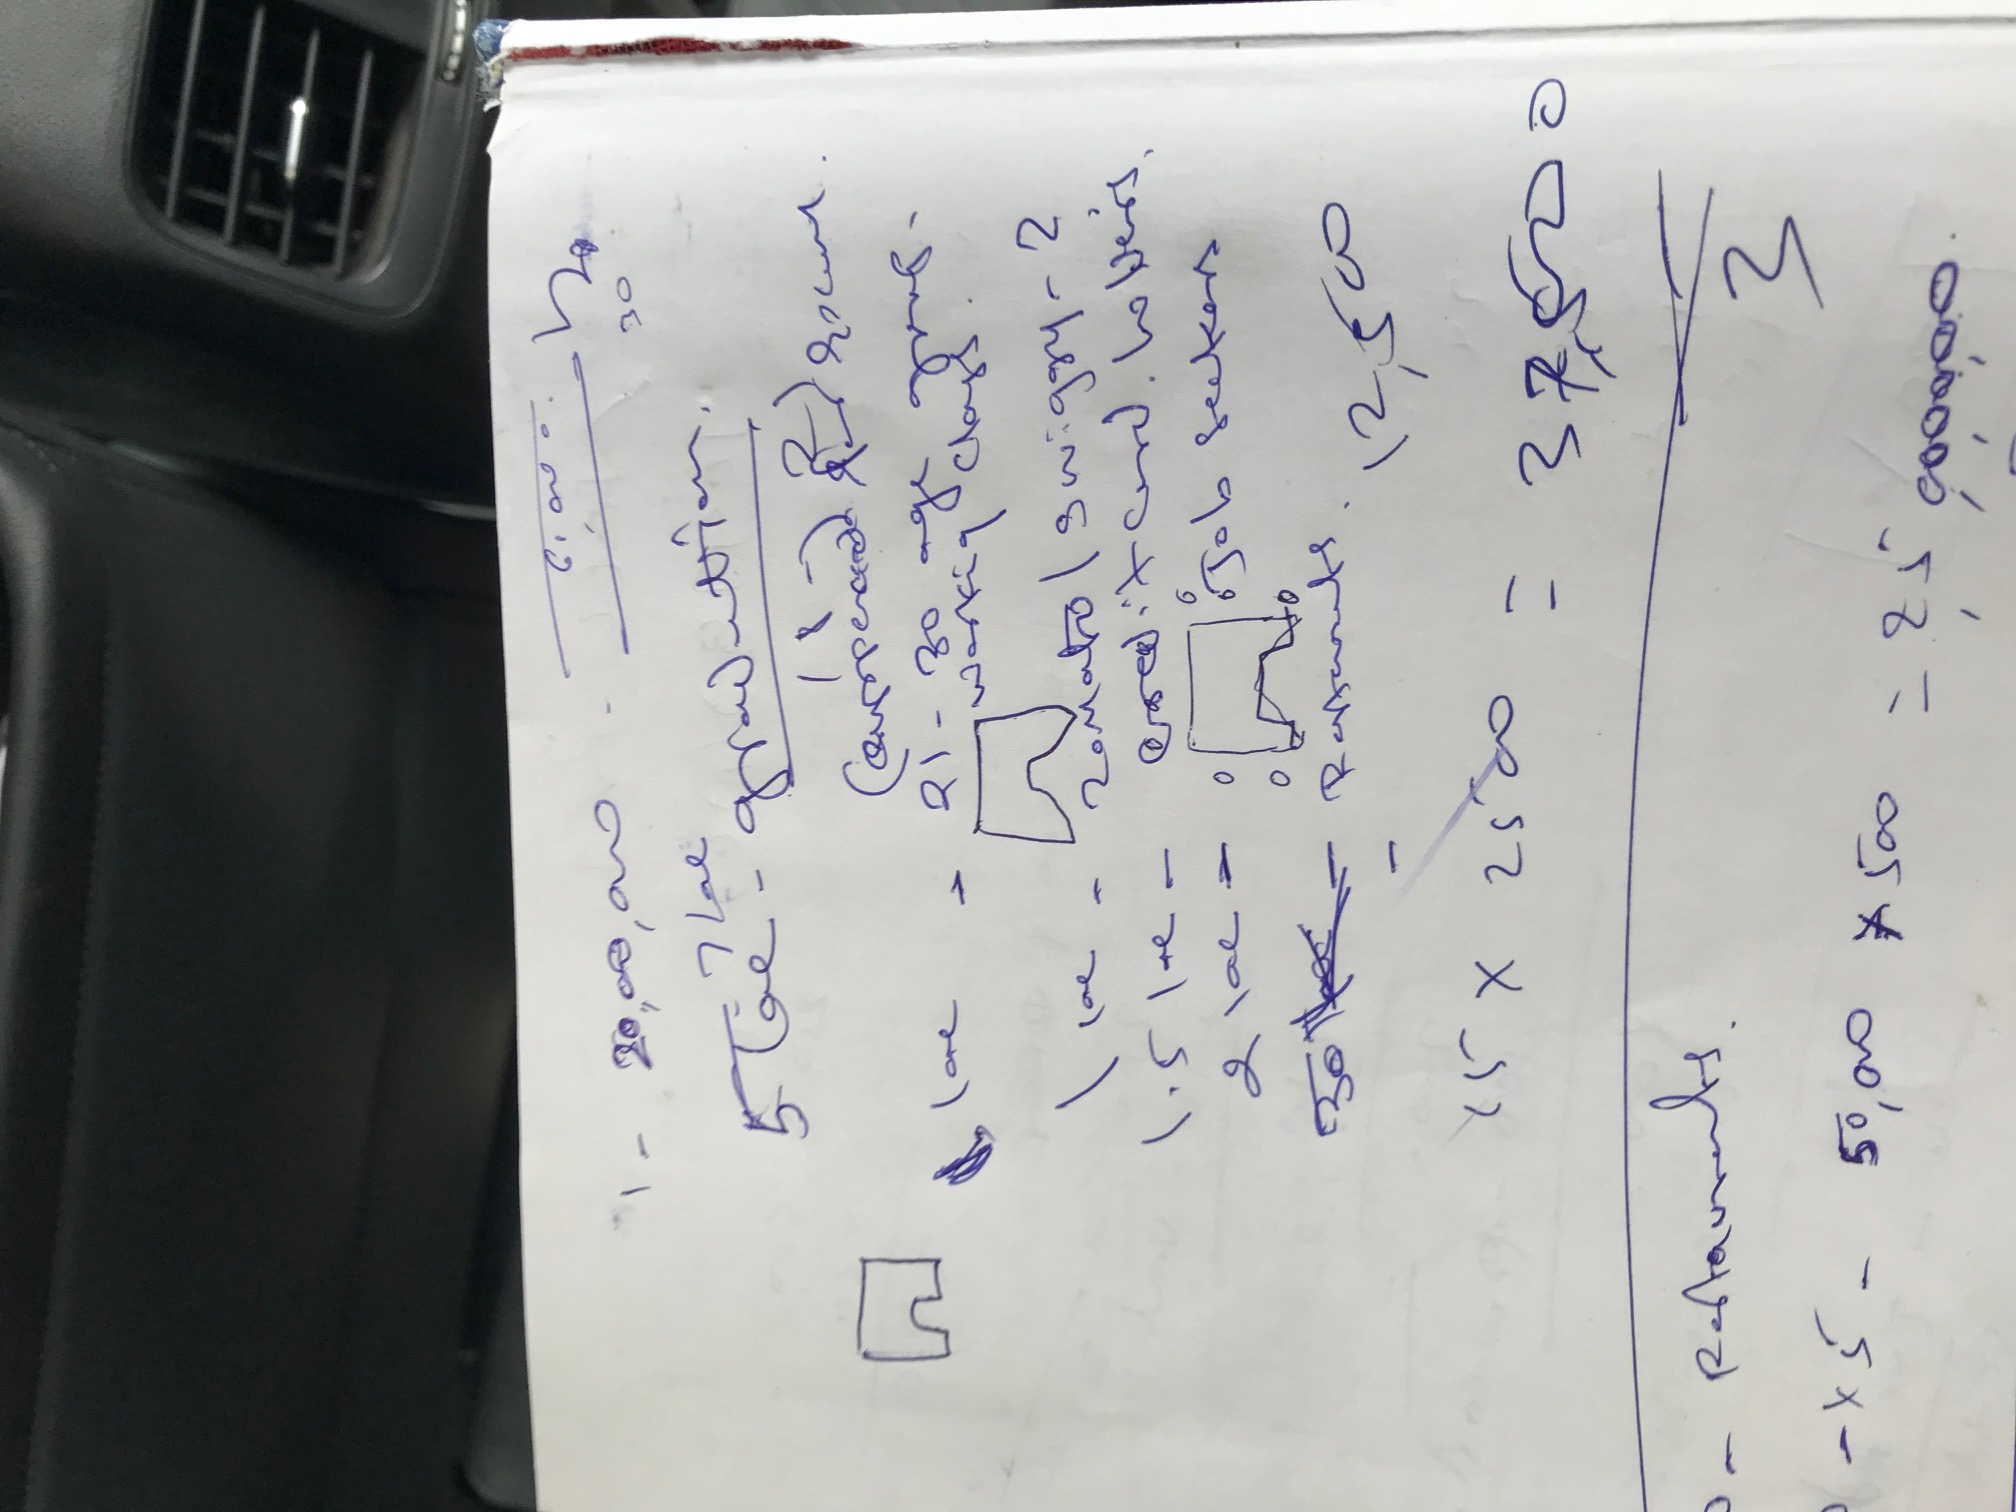 1 - 20,00,000 -
30
7 lac
5 lac - graduttion.
18 - 2
lac - 21 - 30 age group.
working class.
1 lac - Zomato / Swiggy - 2
1.5 lac - credit card. holders.
2 lac - Job seekers
30 - Restaurents.
12,500
15 x 2500 = 37,500
- Restaurents.
3
- x 5 - 50,000 x 500 = 25